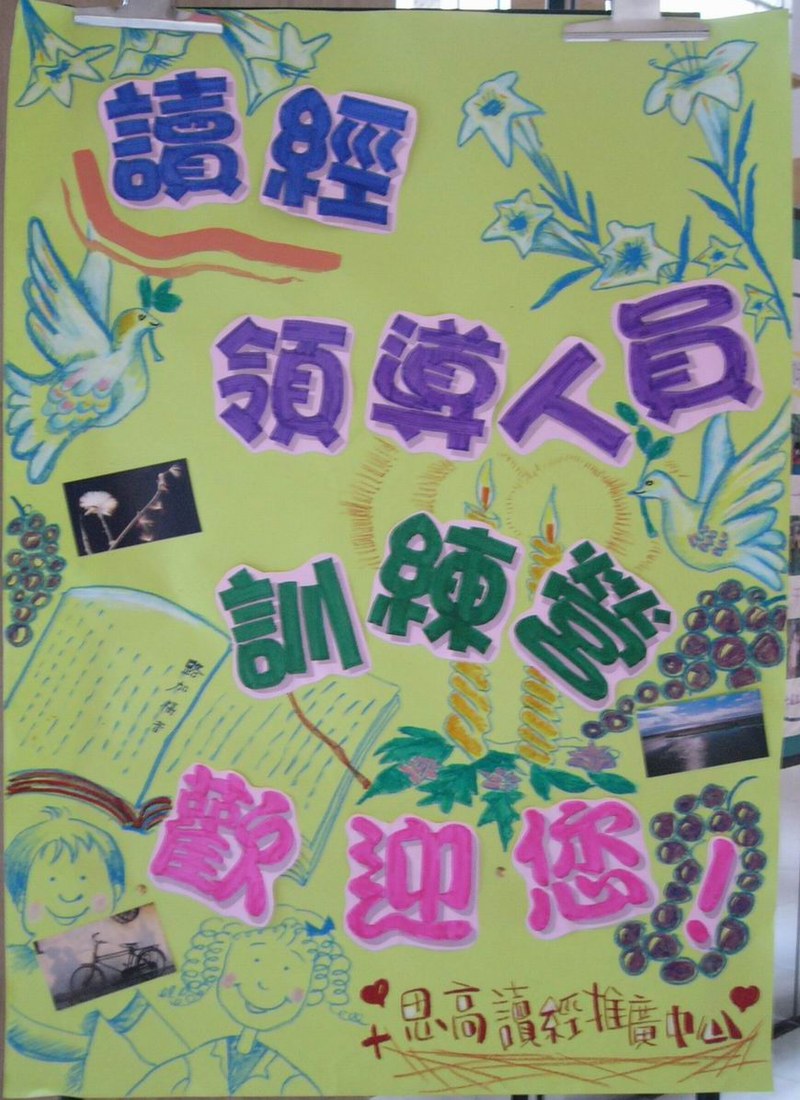 讀經
領導人員
訓練營
路加福音
歡迎您!
思高讀經推廣中心